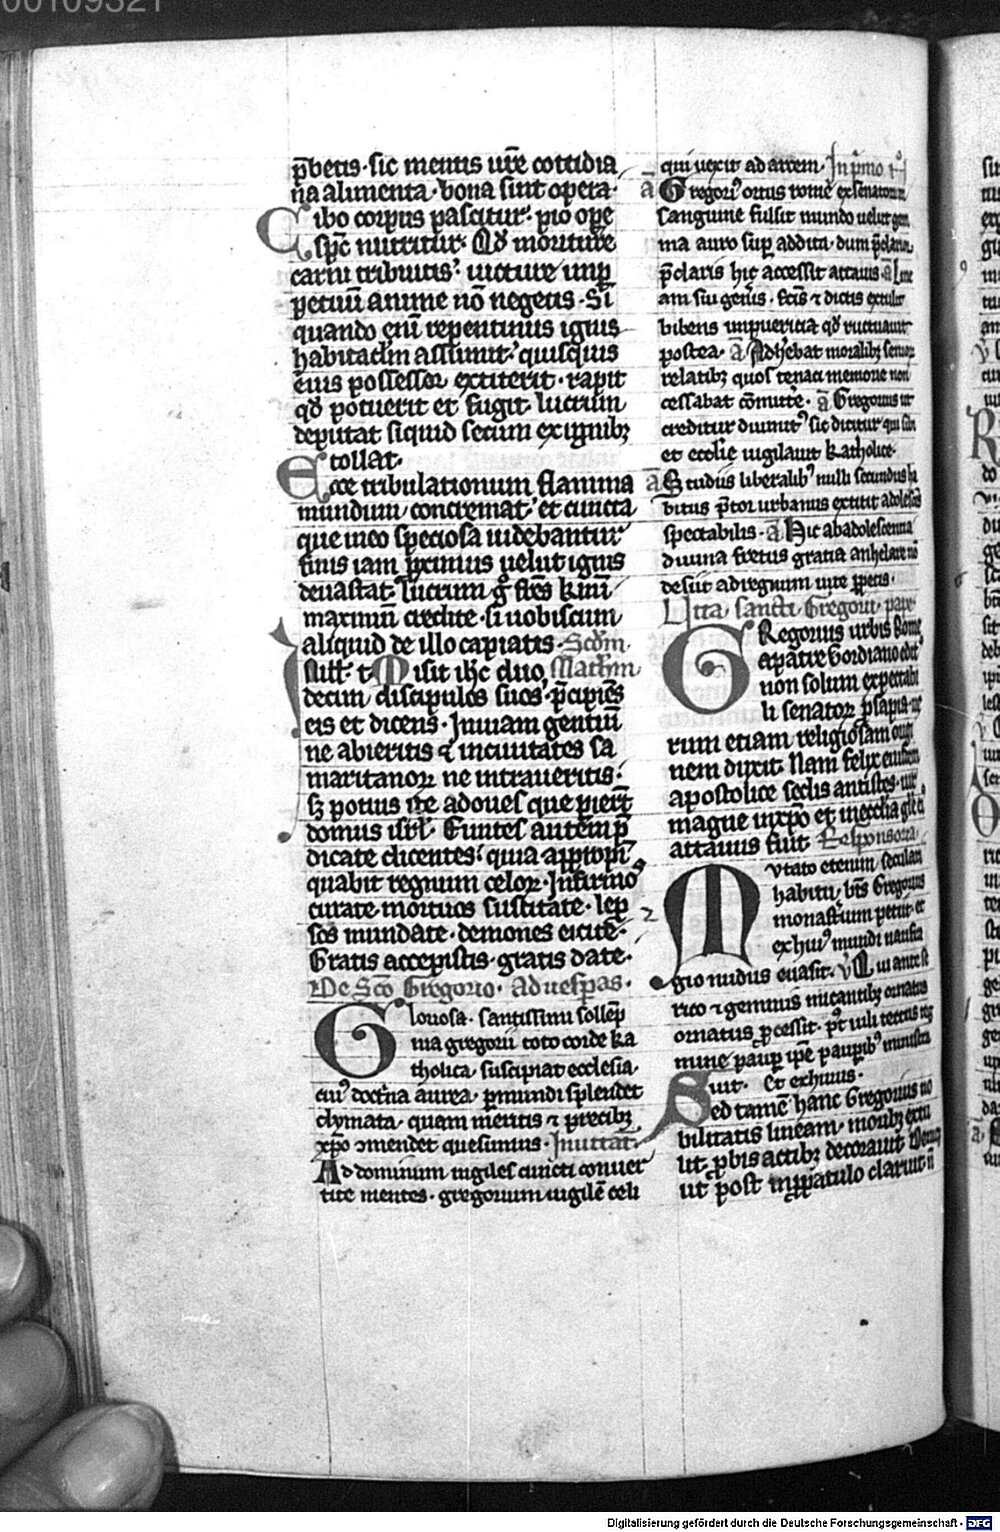 00109321
p̄betis · sic mentis ur̄e cottidia
na alimenta · bona sint opera ·
Cibo corpus pascitur · pio oꝑe
sp̄c nutritur · Qđ moriture
carni tribuitis · uicture inꝑ
petuū anime nō negetis · Si
quando eni repentinus ignis
habitac̄lm assumit · quisquis
eiius possessor extiterit · rapit
qđ potuerit et fugit · lucrum
deputat siquid secum ex ignibꝫ
tollat ·
Ecce tribulationum flamma
mundum concremat · et cuncta
que in eo speciosa uidebantur
finis iam ꝓximus uelut ignis
deuastat · Lucrum g̊ fr̄es k̄mi
maximū credite · si uobiscum
aliquid de illo capiatis · Scd̄m
Matheū
Misit ih̄c duo
decim discipulos suos · p̄cipiēs
eis et dicens · In uiam gentiū
ne abieritis ⁊ in ciuitates sa
maritanoꝝ ne intraueritis ·
sꝫ potius ite ad oues que perier̄t
domus isrl̄ · Euntes autem p̄
dicate dicentes · quia appropī
quabit regnum celoꝝ · Infirmoꝰ
curate · mortuos suscitate · lep
sos mundate · demones eicite ·
Gratis accepistis · gratis date ·
De Sc̄o Gregorio · Ad uesp̄as ·
Gloriosa · sanctissimi sollēp
nia gregorii toto corde ka
tholica · suscipiat ecclesia ·
cuiꝰ doct̄na aurea · ꝑ mundi splendet
clymata · quam meritis ⁊ precibꝫ
xp̄o ꝯmendet quesumus · Inuitat̄
Ad dominum uigiles cuncti conuer
tite mentes · gregorium uigilē celi
qui uexit ad arcem · In p̄mo n̊
ā Gregoriꝰ ortus rome ex senatorum
sanguine fulsit mundo uelut gem
ma auro suꝑ addita · dum p̄clarior
p̄claris hic accessit attauis · ā Line
am sui gen̄is · fc̄is ⁊ dictis extulit
bibens in puericia qđ ructauit
postea · ā Adh̄ebat moralibꝫ senioꝝ
relatibꝫ quos tenaci memorie non
cessabat cōmittē · ā Gregorius ut
creditur diuinitꝰ sic dicitur qui sibi
et ecclie uigilauit katholice ·
ā Studiis liberalibꝰ nulli secundus ha
bitus p̄tor urbanus extitit adolescēs
spectabilis · ā Hic ab adolescentia
diuina fretus gratia anhelare nō
desiit ad regnum uite ꝑpetis ·
Uita sancti Gregorii pape
GRegorius urbis Rome
ex patre Gordiano edit
non solum expectabi
li senatoꝝ ꝓsapia · ue
rum etiam religiosam origi
nem duxit · Nam felix eiusdem
apostolice sedis antistes · uir
magne in xp̄o et in eccl̄ia gl̄e ei
attauus fuit · Responsoria
Mutato etenim seculari
habitu · bt̄s Gregorius
monast̄ium petiit · et
ex huiꝰ mundi naufra
gio nudus euasit · v̄ Qui ante s̄
rico ⁊ gemmis micantibꝫ ornatus
ornatus ꝓcessit · p̄t uili tectus teg
mine pauꝑ ip̄e pauꝑibꝰ ministra
uit · Et ex huius ·
Sed tamē hanc Gregorius no
bilitatis lineam · moribꝫ extu
lit · ꝓbis actibꝫ decorauit · Deniqꝫ
ut post in ꝓpatulo claruit n̄
Digitalisierung gefördert durch die Deutsche Forschungsgemeinschaft - DFG